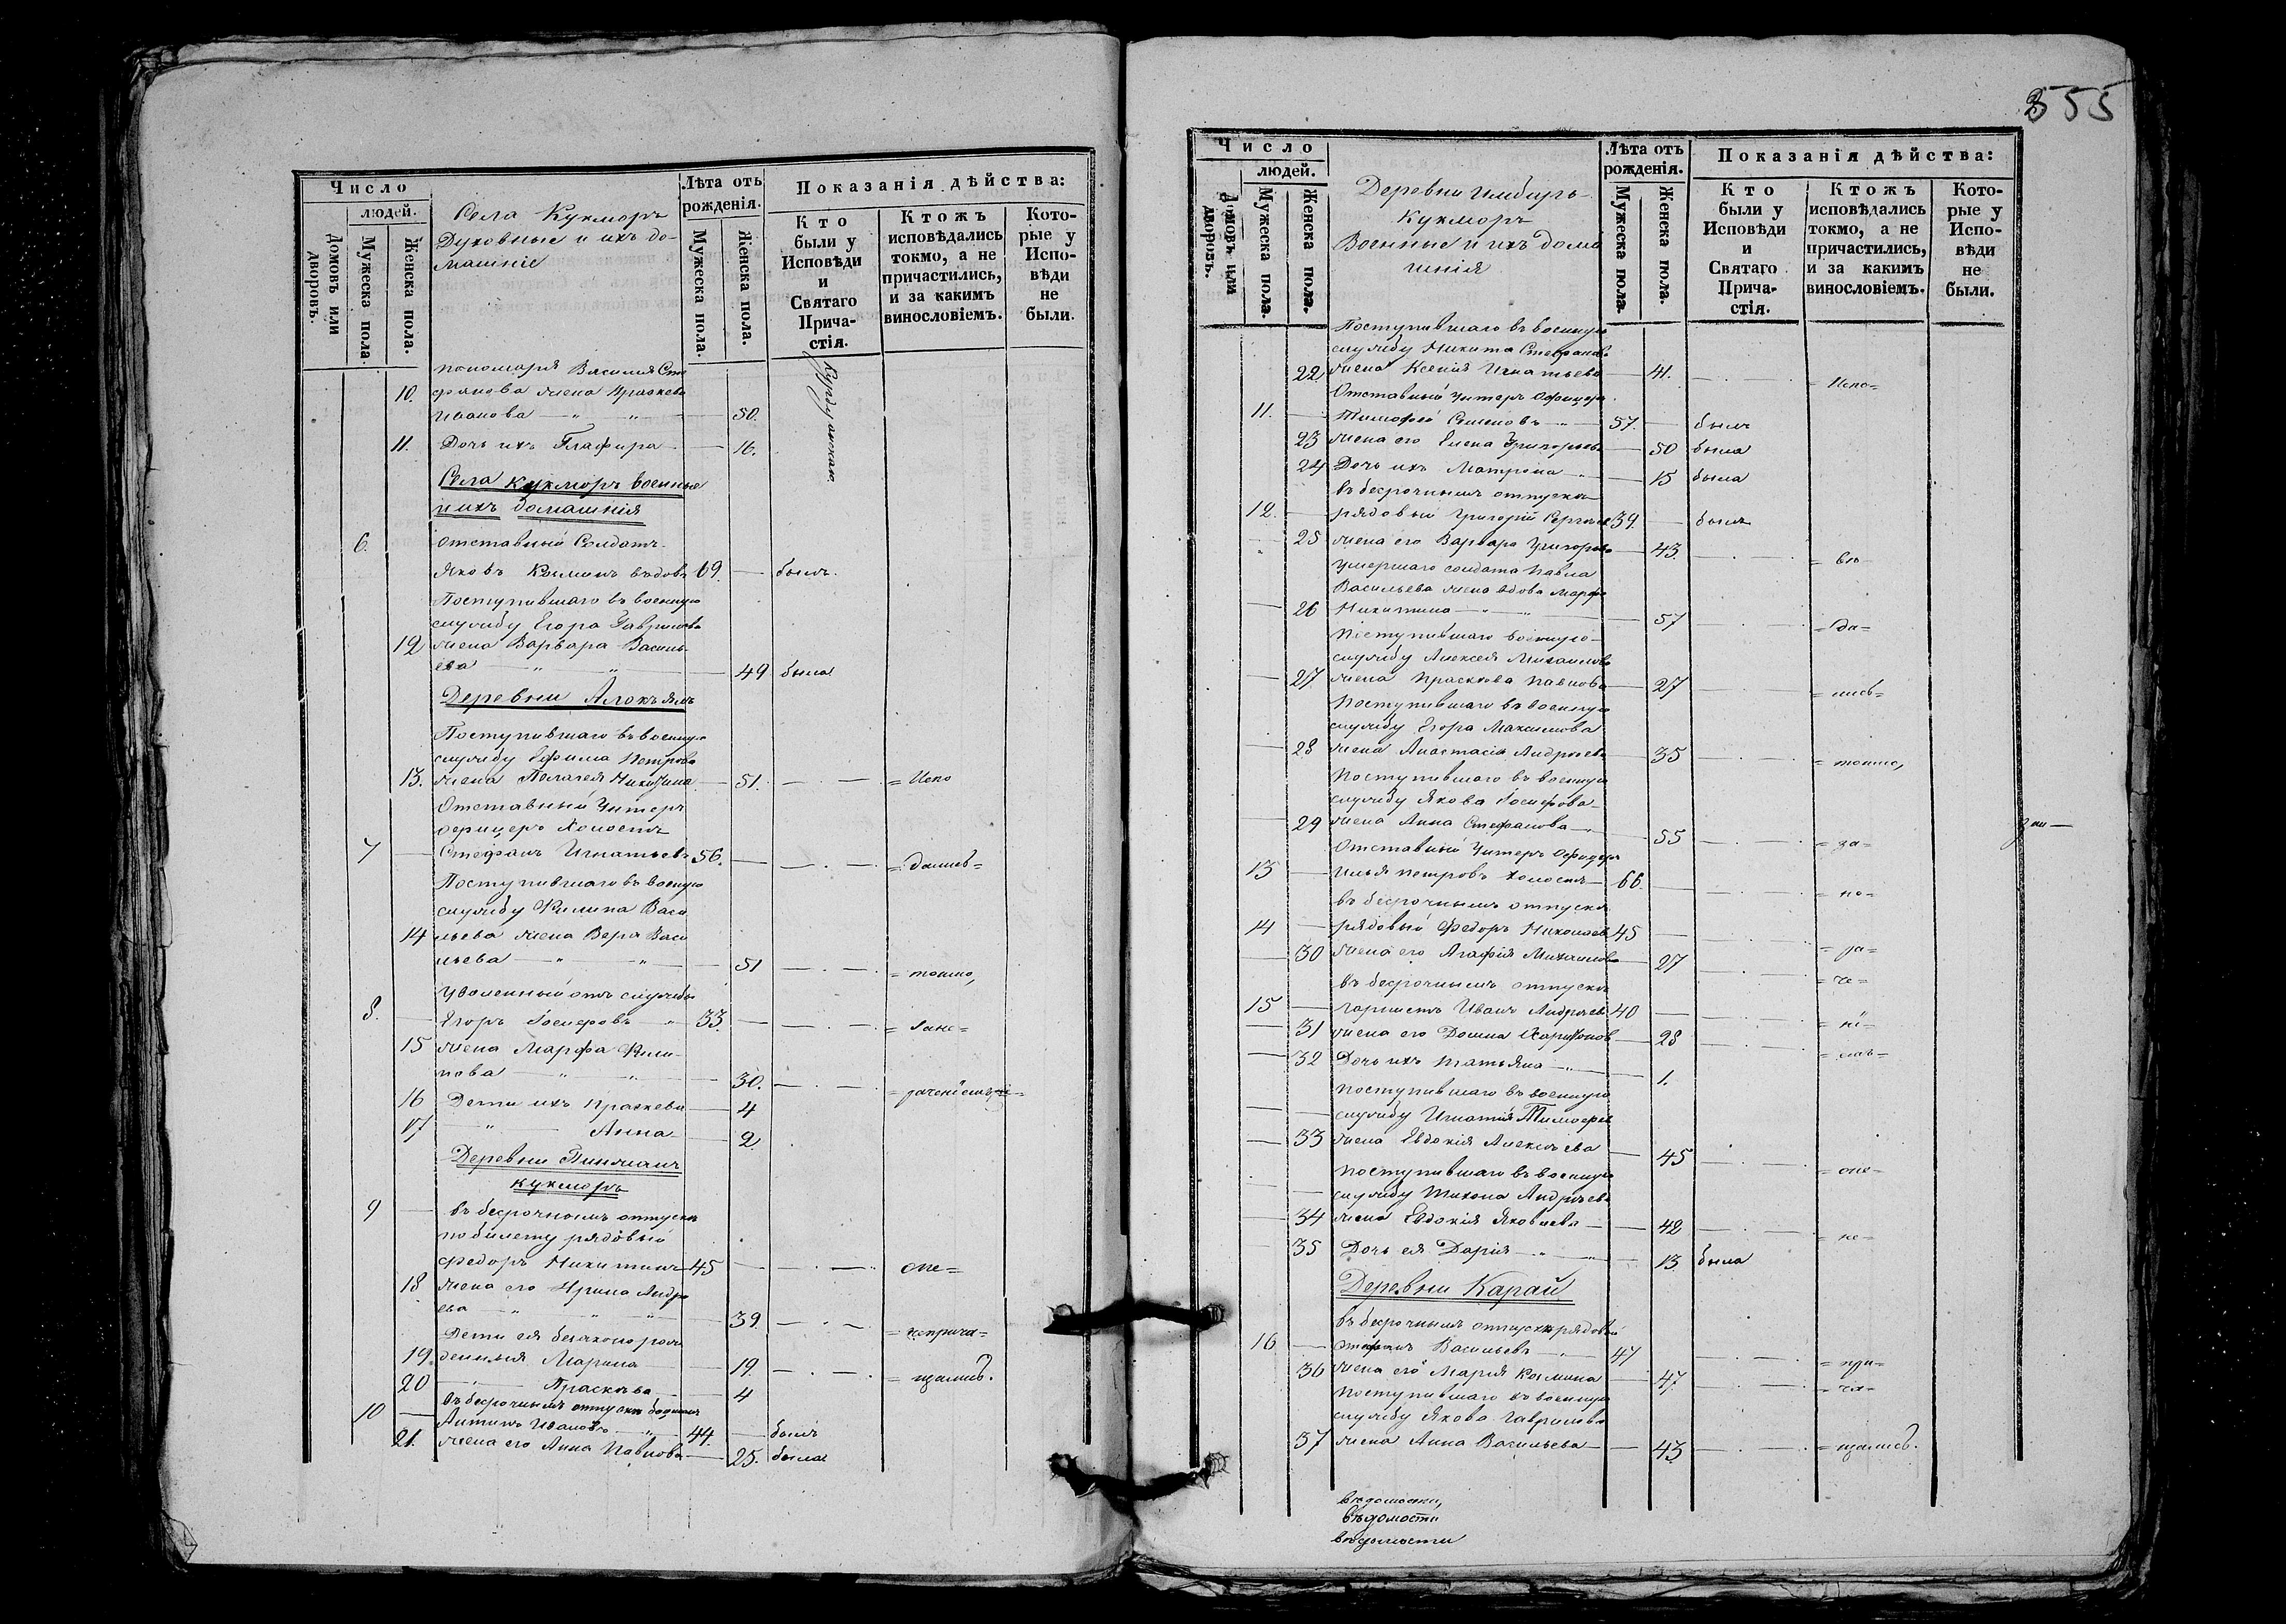 555
Число
людей.
Домовъ или дворовъ.
Мужеска пола.
Женска пола.
Села Кукморъ
Духовные и ихъ до-
машніе
Лѣта отъ рожденія.
Мужеска пола.
Женска пола.
Показанія дѣйства:
Кто были у Исповѣди и Святаго Прича-стія.
Ктожъ исповѣдались токмо, а не причастились, и за какимъ винословіемъ.
Кото-рые у Испо-вѣди не были.
пономаря Василія Сте
10. фанова жена Праскева
Иванова — " — " — 50.
11. Дочь ихъ Глафира — 16.
Села Кукморъ военные
и ихъ домашнія
6. Отставный Солдатъ
Яковъ Козминъ вдовъ 69. — былъ.
Поступившаго въ военную
службу Егора Гаврилова
12 жена Варвара Василь-
ева — " — " — 49 была
Деревни
Поступившаго въ военную
службу Ефима Петрова
13. жена Пелагея Никитина — 51. — . — = Испо
Отставный Унтеръ
офицеръ Холостъ
7 — Стефанъ Игнатьевъ 56. — — . — = дались=
Поступившаго въ военную
службу Филипа Васи
14 льева жена Вера Васи
льева — " — " — 51 — . — = токмо,
Уволенный отъ службы
8. — Егоръ Іосифовъ " — 33. — — . — =
15 жена Марфа Фили-
пова — " — " — 30. — . — =
16 Дети ихъ Праскева — 4
17 " — Анна — 2.
Деревни
Кукморъ
9 — въ безсрочномъ отпуску
по билету рядовый
Федоръ Никитинъ 45 — — . — оне=
18 жена его Ирина Андре
ева — " — " — 39. — . — = неприча=
Дети ея беззаконорож
19. денныя Марина — 19. — . — = щались.
20 " — Праскева — 4
10 — въ безсрочномъ отпуску
Антипъ Ивановъ — " — 44. — былъ
21. жена его Анна Павлова — 25. была
Число
людей.
Домовъ или дворовъ.
Мужеска пола.
Женска пола.
Деревни Имбиръ
Кукморъ
Военные и ихъ дома
шнія
Лѣта отъ рожденія.
Мужеска пола.
Женска пола.
Показанія дѣйства:
Кто были у Исповѣди и Святаго Прича-стія.
Ктожъ исповѣдались токмо, а не причастились, и за какимъ винословіемъ.
Кото-рые у Испо-вѣди не были.
Поступившаго въ военную
службу Никита Стефанова
22. жена Ксенія Игнатьева — 41. — . — = Испо=
Отставный Унтеръ Офицеръ
11. — Тимофей Семеновъ — " — 57. — былъ
23 жена его Елена Григорьева — 50 была
24 Дочь ихъ Матрона — " — 15 была
въ безсрочнымъ отпуску
12. — рядовый Григорій Сергеевъ 39. — былъ
25 жена его Варвара Григорьева — 43. — . — = вѣ
умершаго солдата Павла
Васильева жена вдова Марфа
26 Никитина — " — " — 57 — . — = да=
Поступившаго военную
службу Алексея Михаилова
27 жена Праскова Павлова — 27 — . — = лись=
Поступившаго въ военную
службу Егора Максимова
28 жена Анастасія Андреева — 35 — . — = токмо,
Поступившаго въ военную
службу Якова Іосифова
29 жена Анна Стефанова — " — 55 — . — = за=
Отставный Унтеръ Офицеръ
13 — Илья Петровъ Холостъ — 66. — — . — = не=
въ безсрочнымъ отпуску
14 — рядовый Федоръ Николаевъ 45 — — . — = ра=
30 жена его Агафія Михаилова — 27 — . — = че=
въ безсрочнымъ отпуску
15 — Иванъ Андреевъ 40 — — . — = ні=
31 жена его Домна Харитонова — 28 — . — = емъ=
32 Дочь ихъ Татьяна — " — 1.
Поступившаго въ военную
службу Игнатія Тимофеева
33 жена Евдокія Алексѣева — 45 — . — = оне=
Поступившаго въ военную
службу Тихона Андреева
34 жена Евдокія Яковлева — 42 — . — = не=
35 Дочь ея Дарія — " — " — 13 была
Деревни Карай
въ безсрочнымъ отпуску рядовый
16 — Стефанъ Васильевъ — " — 47 — . — = при=
36 жена его Марія Козмина — 47. — . — = ча=
Поступившаго въ военную
службу Якова Гаврилова
37 жена Анна Васильева — 43 — . — = щались.
вѣдомости,
вѣдомости
вѣдомости